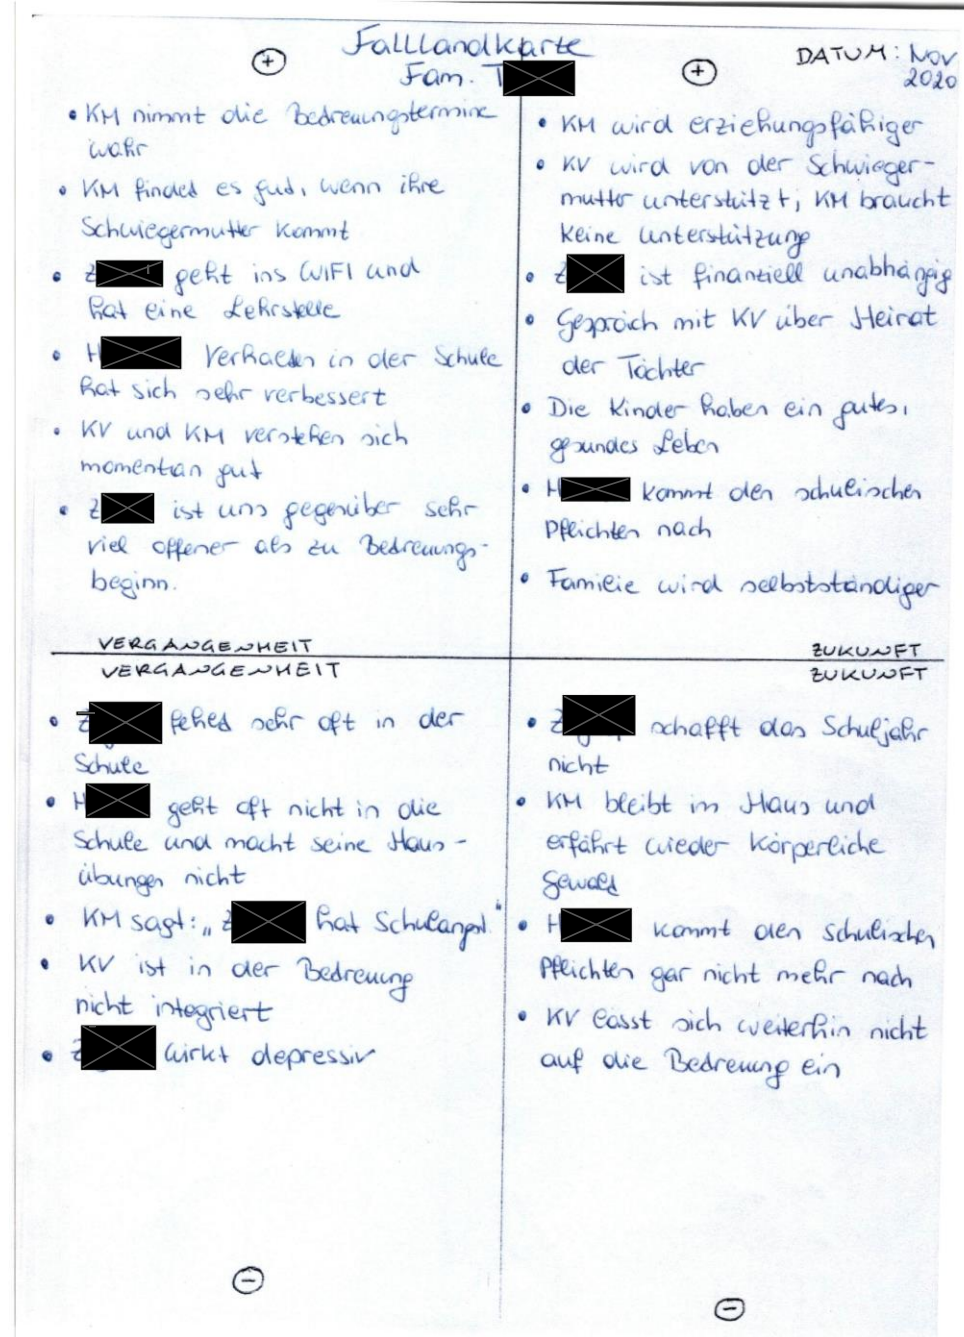 Falllandkarte
Fam. T
DATUM: Nov
2020
+
• KM nimmt die Bedreuungstermine
wahr
• KM findet es gut, wenn ihre
Schwiegermutter kommt
• Z geht ins WIFI und
hat eine Lehrstelle
• H Verhalten in der Schule
hat sich sehr verbessert
• KV und KM verstehen sich
momentan gut
• Z ist uns gegenüber sehr
viel offener als zu Bedreuungs-
beginn.
VERGANGENHEIT
+
• KM wird erziehungsfähiger
• KV wird von der Schwieger-
mutter unterstützt, KM braucht
keine Unterstützung
• Z ist finanziell unabhängig
• Gespräch mit KV über Heirat
der Töchter
• Die Kinder haben ein gutes,
gesundes Leben
• H kommt den schulischen
Pflichten nach
• Familie wird selbstständiger
ZUKUNFT
VERGANGENHEIT
• Z fehlt sehr oft in der
Schule
• H geht oft nicht in die
Schule und macht seine Haus-
übungen nicht
• KM sagt: „Z hat Schulangst."
• KV ist in der Bedreuung
nicht integriert
• Z wirkt depressiv
-
ZUKUNFT
• Z schafft das Schuljahr
nicht
• KM bleibt im Haus und
erfährt wieder körperliche
Gewalt
• H kommt den schulischen
Pflichten gar nicht mehr nach
• KV lässt sich weiterhin nicht
auf die Bedreuung ein
-